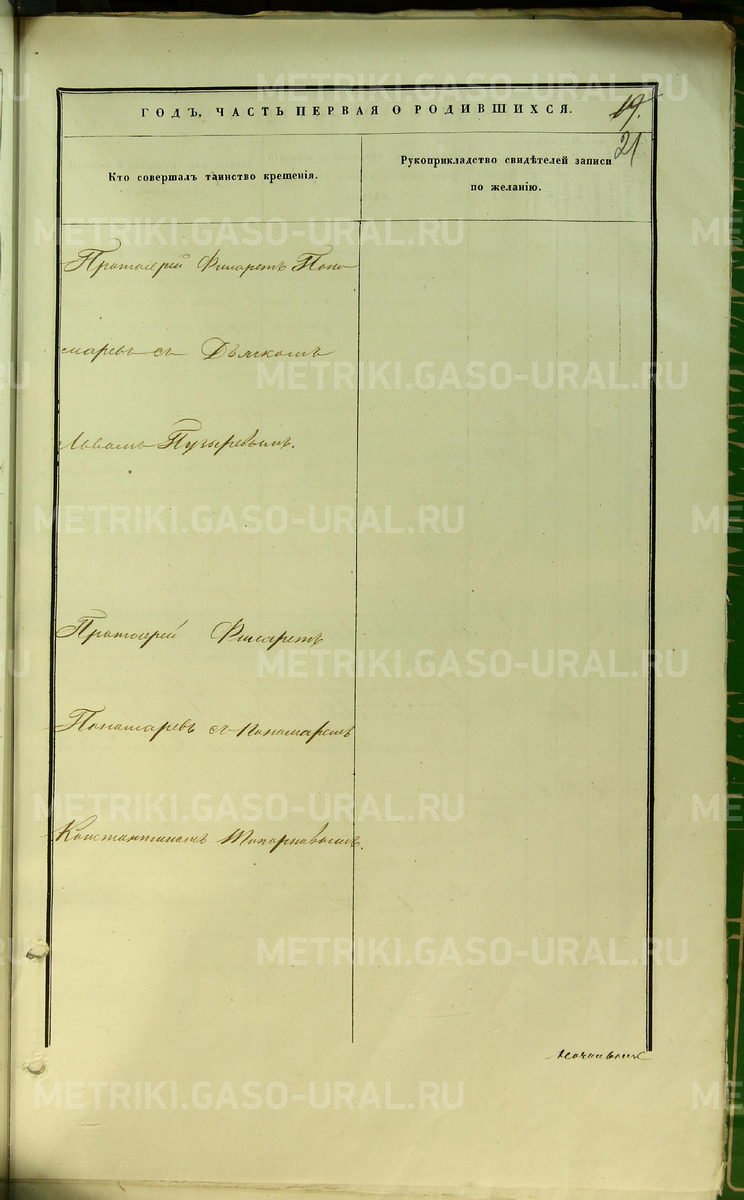 ГОДЪ, ЧАСТЬ ПЕРВАЯ О РОДИВШИХСЯ.
19.
21
Кто совершалъ таинство крещенія.
Рукоприкладство свидѣтелей записи
по желанію.
Протоіерей Филаретъ Поно
маревъ съ Дьячкомъ
Львомъ Пузыревымъ.
Протоіерей Филаретъ
Пономаревъ съ пономаремъ
Константиномъ Топорковымъ.
METRIKI.GASO-URAL.RU